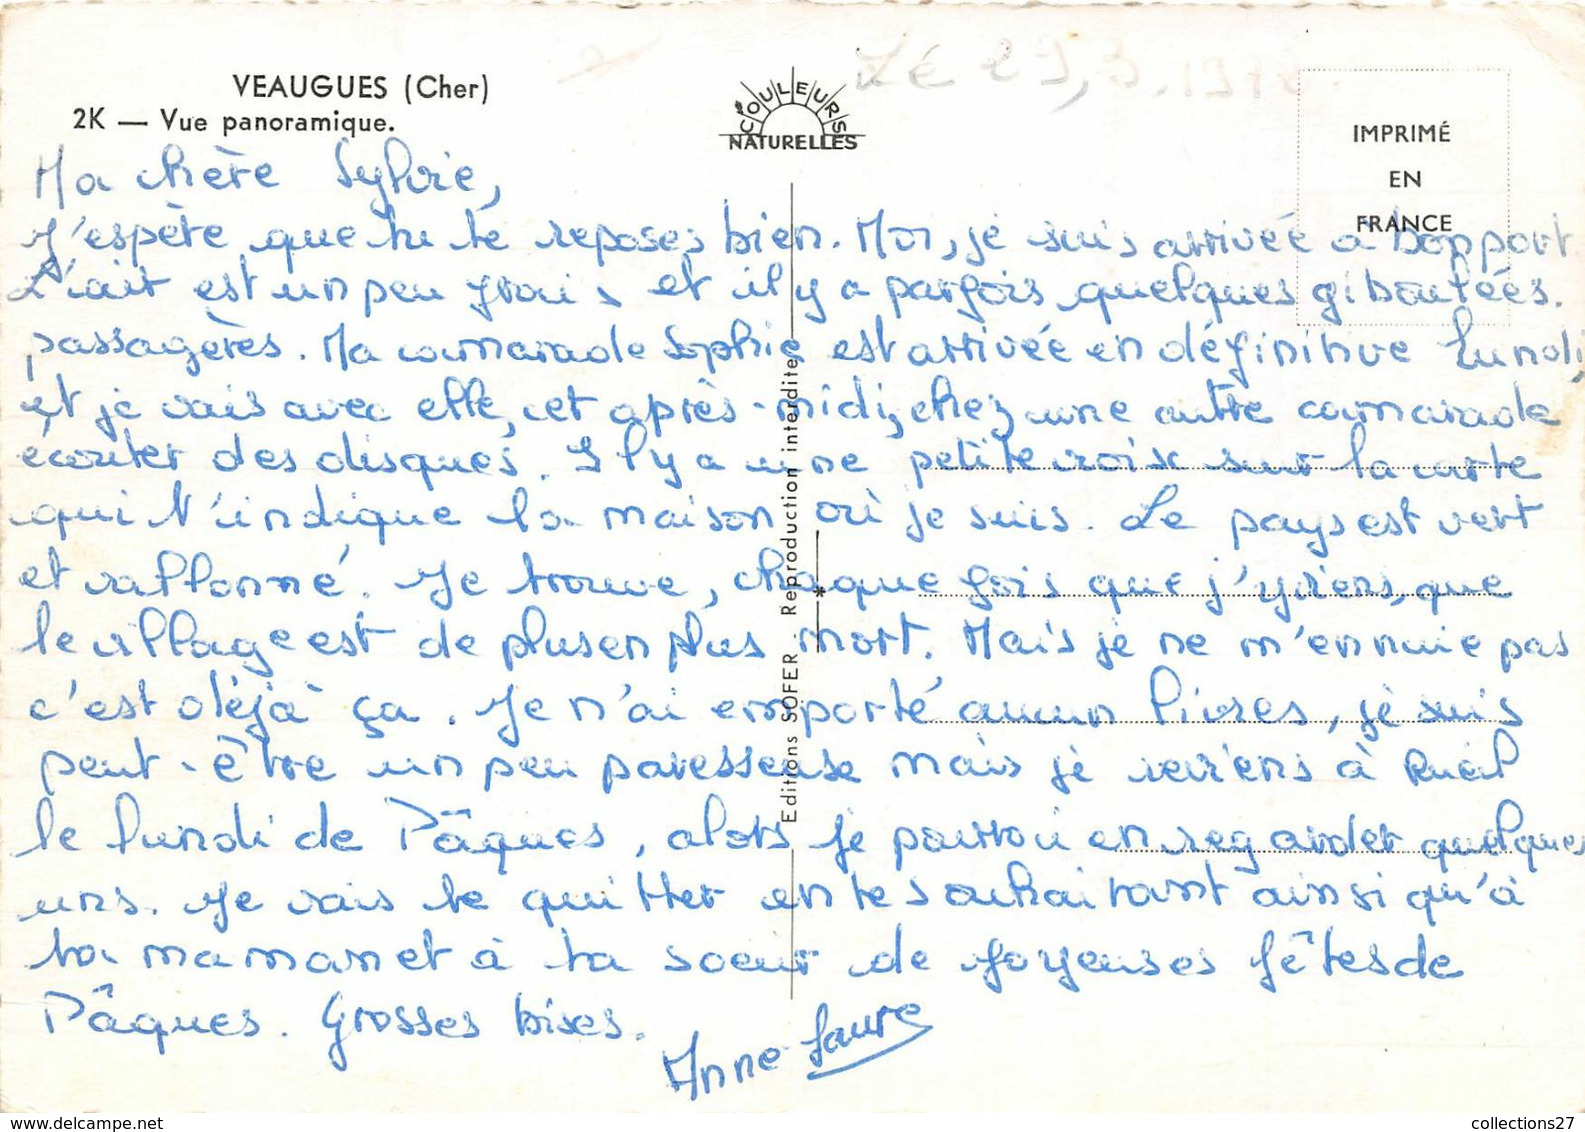 VEAUGUES (Cher)
2K — Vue panoramique.
COULEURS
NATURELLES
Le 29, 3, 197
IMPRIMÉ
EN
FRANCE
Ma chère Sylvie,
J'espère que tu te reposes bien. Moi, je suis arrivée à bon port.
L'air est un peu frais et il y a parfois quelques giboulées
passagères. Ma camarade Sophie est arrivée en définitive lundi,
et je vais avec elle, cet après-midi, chez une autre camarade
écouter des disques. Il y a une petite croix sur la carte
qui t'indique la maison où je suis. Le pays est vert
et vallonné. Je trouve, chaque fois que j'y viens, que
le village est de plus en plus mort. Mais je ne m'ennuie pas
c'est déjà ça. Je n'ai emporté aucun livres, je suis
peut-être un peu paresseuse mais je reviens à Rueil
le lundi de Pâques, alors je pourrai en regarder quelques
uns. Je vais te quitter en te souhaitant ainsi qu'à
ta maman et à ta soeur de joyeuses fêtes de
Pâques. Grosses bises.
Anne Laure
Editions SOFER - Reproduction interdite
collections27